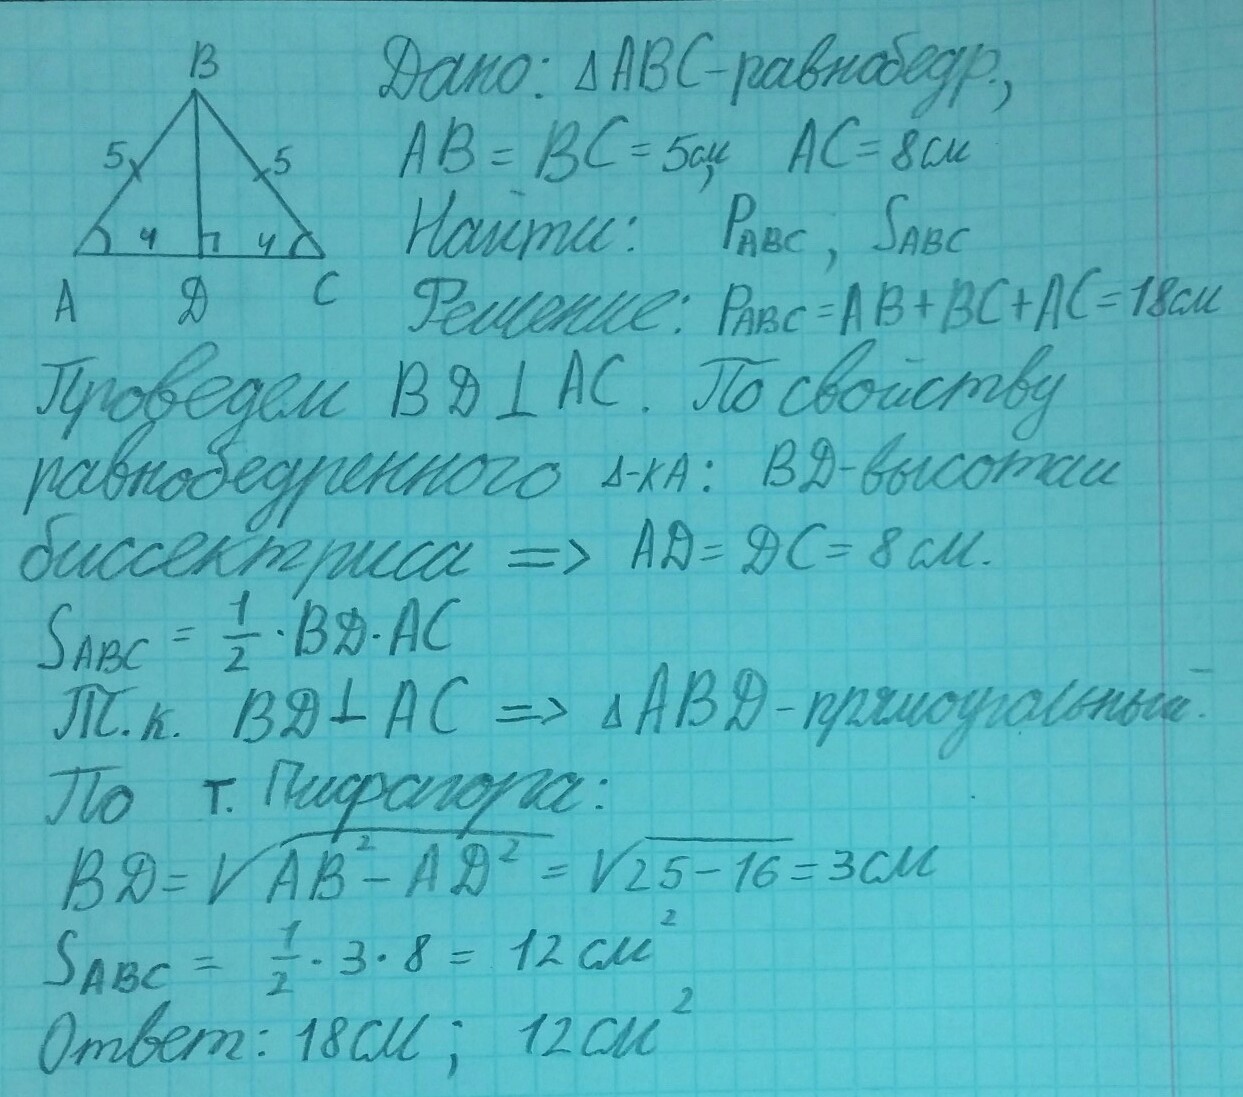 B
5 5
4 4
A D C
Дано: ΔABC-равнобедр.,
AB = BC = 5см, AC = 8см
Найти: P_ABC, S_ABC
Решение: P_ABC = AB + BC + AC = 18см
Проведем BD ⊥ AC. По свойству
равнобедренного Δ-КА: BD-высота и
биссектриса => AD = DC = 8см.
S_ABC = 1/2 · BD · AC
Т.к. BD ⊥ AC => ΔABD-прямоугольный.
По т. Пифагора:
BD = √(AB² - AD²) = √(25 - 16) = 3см
S_ABC = 1/2 · 3 · 8 = 12 см²
Ответ: 18см; 12см²